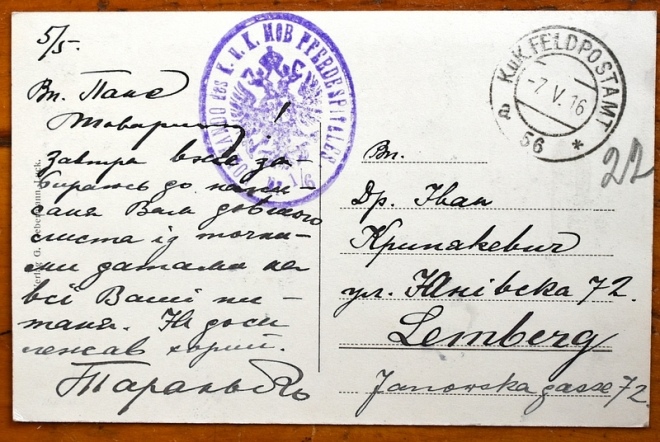 5/5.
Вп. Пане
Товаришу!
Завтра вже за-
бираюсь до
сания Вам довшого
листа із точни-
ми датами на
всі Ваші пи-
таня. На доси
лежав хорий.
KOMMANDO des K.u.K. MOB. PFERDESPITALES
K.u.K. FELDPOSTAMT
-7.V.16
a
56 *
22
Вп.
Др. Іван
Крипякевич
ул. Янівска 72.
Lemberg
Janowska gasse 72.